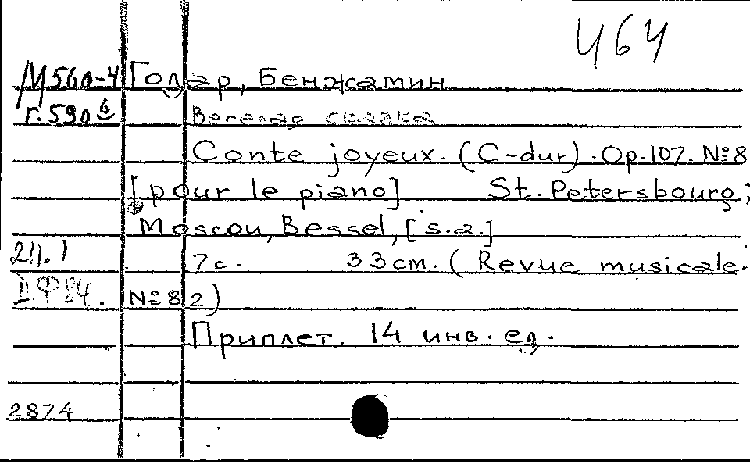 464
М560-4 Годар, Бенжамин
Г.590б Веселая сказка
Conte joyeux. (C-dur). Op.107. №8
[pour le piano] St. Petersbourg;
Moscou, Bessel, [s.a.]
7с. 33см. (Revue musicale.
№82)
Приплет. 14 инв. ед.
2874